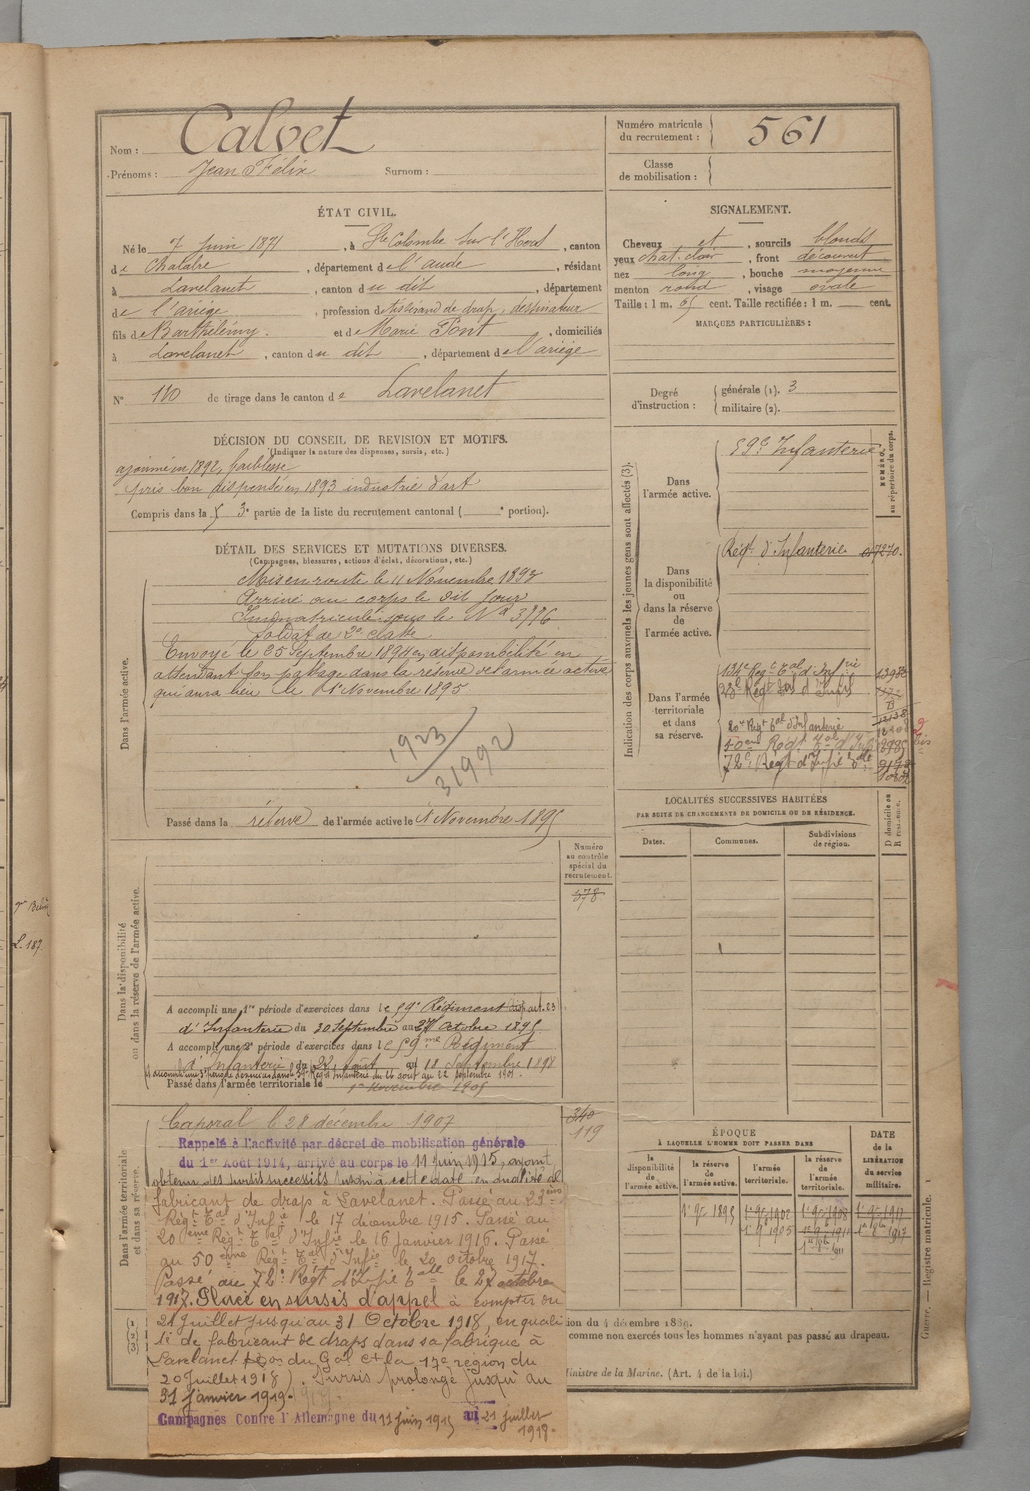 Nom : Calvet
Prénoms : Jean Félix Surnom :
Numéro matricule
du recrutement : 561
Classe
de mobilisation :
ÉTAT CIVIL.
Né le 7 Juin 1871, à Ste Colombe sur l'Hers, canton
de Chalabre, département de l'aude, résidant
à Lavelanet, canton du dit, département
de l'ariège, profession de tisserand de drap, dessinateur
fils de Barthélémy. et de Marie Pont, domiciliés
à Lavelanet, canton du dit, département de l'ariège
N° 110 de tirage dans le canton de Lavelanet
SIGNALEMENT.
Cheveux et, sourcils blonds
yeux chat. clair, front découvert
nez long, bouche moyenne
menton rond, visage ovale
Taille : 1 m. 65 cent. Taille rectifiée : 1 m. cent.
MARQUES PARTICULIÈRES :
Degré
d'instruction :
générale (1). 3
militaire (2).
DÉCISION DU CONSEIL DE REVISION ET MOTIFS.
(Indiquer la nature des dispenses, sursis, etc.)
ajourné en 1892, faiblesse
pris bon dispensé en 1893 industrie d'art
Compris dans la 3e partie de la liste du recrutement cantonal ( e portion).
DÉTAIL DES SERVICES ET MUTATIONS DIVERSES.
(Campagnes, blessures, actions d'éclat, décorations, etc.)
Dans l'armée active.
Mis en route le 11 Novembre 1893
Arrivé au corps le dit jour
Immatriculé sous le N° 3776
Soldat de 2e classe
Envoyé le 25 Septembre 1894 en disponibilité en
attendant son passage dans la réserve de l'armée active
qui aura lieu le 1er Novembre 1895
1923
3199
Passé dans la réserve de l'armée active le 1er Novembre 1895
Indication des corps auxquels les jeunes gens sont affectés (3).
NUMÉRO
au répertoire du corps.
Dans
l'armée active.
59e Infanterie
Dans
la disponibilité
ou
dans la réserve
de
l'armée active.
Régt d'Infanterie
Dans l'armée
territoriale
et dans
sa réserve.
134e Regt Tal d'Infie
23e Régt Tal d'Infie
20e Régt Tal d'Infanterie
50ème Régt Tal d'Infie
72e Régt d'Infie Talle
LOCALITÉS SUCCESSIVES HABITÉES
PAR SUITE DE CHANGEMENTS DE DOMICILE OU DE RÉSIDENCE.
Dates. Communes. Subdivisions
de région.
D. domicile ou
R. résidence.
Numéro
au contrôle
spécial du
recrutement.
578
Dans la disponibilité
ou dans la réserve de l'armée active.
A accompli une 1re période d'exercices dans le 59e Régiment
d'Infanterie du 30 Septembre au 27 Octobre 1895
A accompli une 2e période d'exercices dans le 59me Régiment
d'Infanterie du 22 Août au 18 Septembre 1898
Passé dans l'armée territoriale le 1er Novembre 1905
Dans l'armée territoriale
et dans sa réserve.
340
119
Caporal le 28 décembre 1907
Rappelé à l'activité par décret de mobilisation générale
du 1er Août 1914, arrivé au corps le 11 Juin 1915, ayant
obtenu des sursis successifs jusqu'à cette date en qualité de
fabricant de drap à Lavelanet. Passé au 23ème
Régt Tal d'Infie le 17 décembre 1915. Passé au
20ème Régt Tal d'Infie le 16 janvier 1916. Passé
au 50ème Régt Tal d'Infie le 20 octobre 1917.
Passé au 72e Régt d'Infie Talle le 27 octobre
1917. Placé en sursis d'appel à compter du
21 Juillet jusqu'au 31 Octobre 1918, en quali
té de fabricant de draps dans sa fabrique à
Lavelanet os du Gal Ct la 17e région du
20 Juillet 1918). Sursis prolongé jusqu'au
31 janvier 1919.
Campagnes Contre l'Allemagne du 11 juin 1915 au 21 juillet
1918.
ÉPOQUE
À LAQUELLE L'HOMME DOIT PASSER DANS
la
disponibilité
de l'armée
active.
la réserve
de
l'armée active.
l'armée
territoriale.
la réserve
de
l'armée
territoriale.
DATE
de la
LIBÉRATION
du service
militaire.
1er 9bre 1895
1er 9bre 1905
tion du 4 décembre 1889.
comme non exercés tous les hommes n'ayant pas passé au drapeau.
Ministre de la Marine. (Art. 4 de la loi.)
Guerre. — Registre matricule. 1